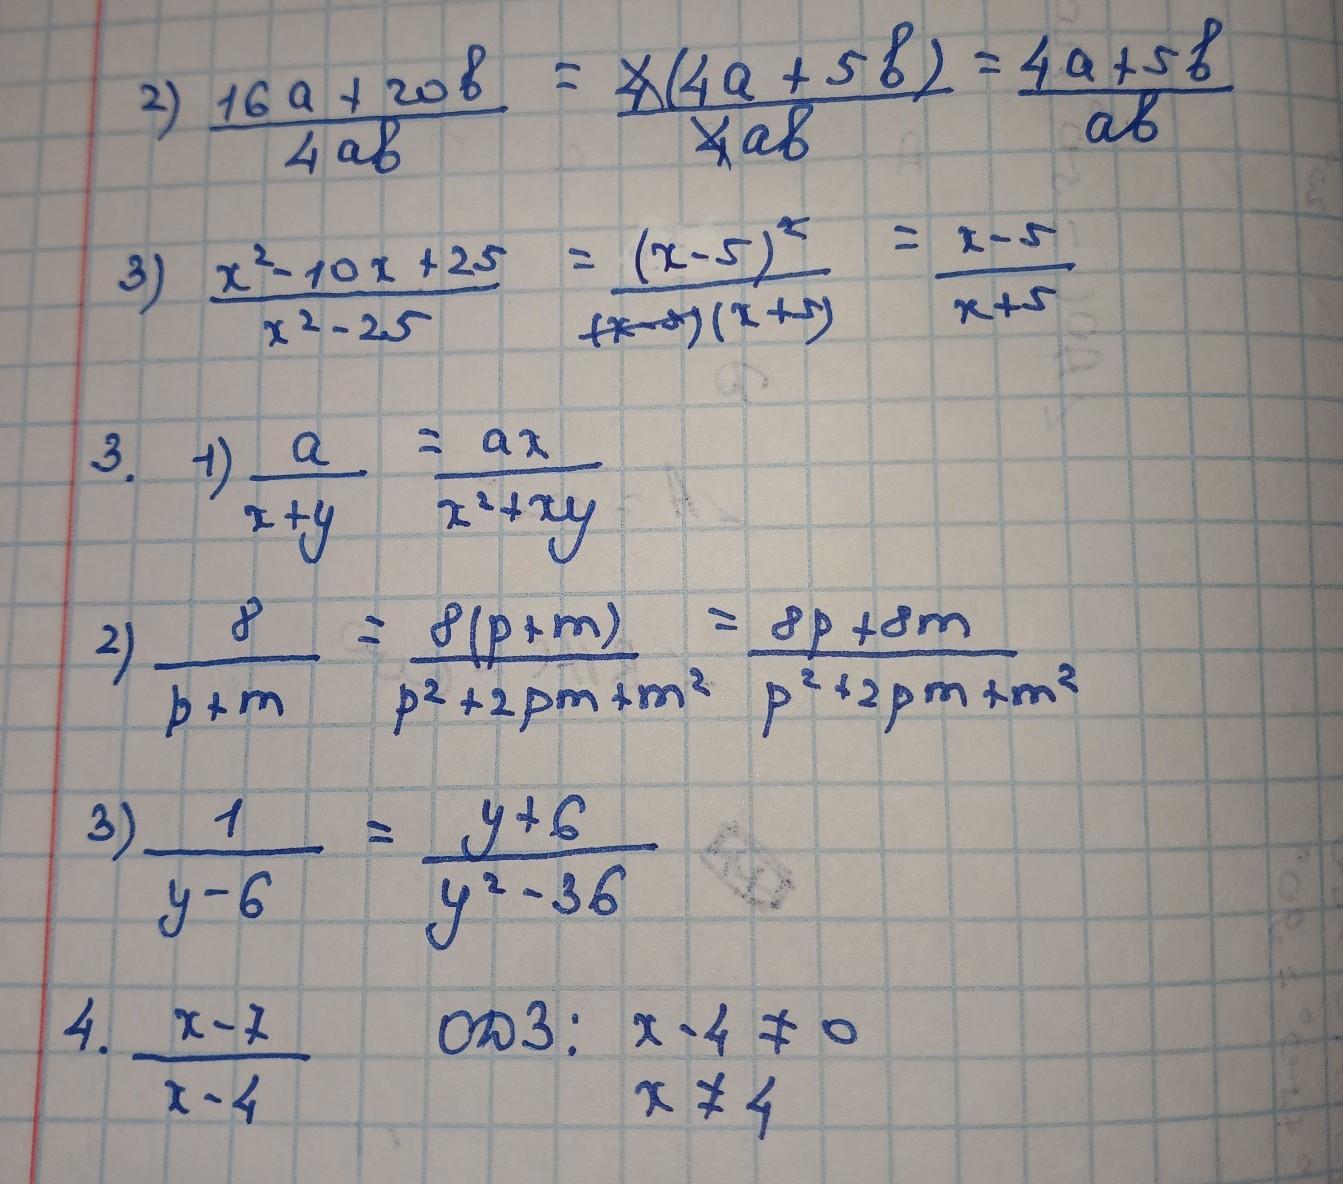 2) (16a + 20b)/(4ab) = (4(4a + 5b))/(4ab) = (4a + 5b)/(ab)
3) (x² - 10x + 25)/(x² - 25) = (x - 5)²/((x - 5)(x + 5)) = (x - 5)/(x + 5)
3. 1) a/(x + y) = ax/(x² + xy)
2) 8/(p + m) = 8(p + m)/(p² + 2pm + m²) = (8p + 8m)/(p² + 2pm + m²)
3) 1/(y - 6) = (y + 6)/(y² - 36)
4. (x - 7)/(x - 4) ОДЗ: x - 4 ≠ 0
x ≠ 4